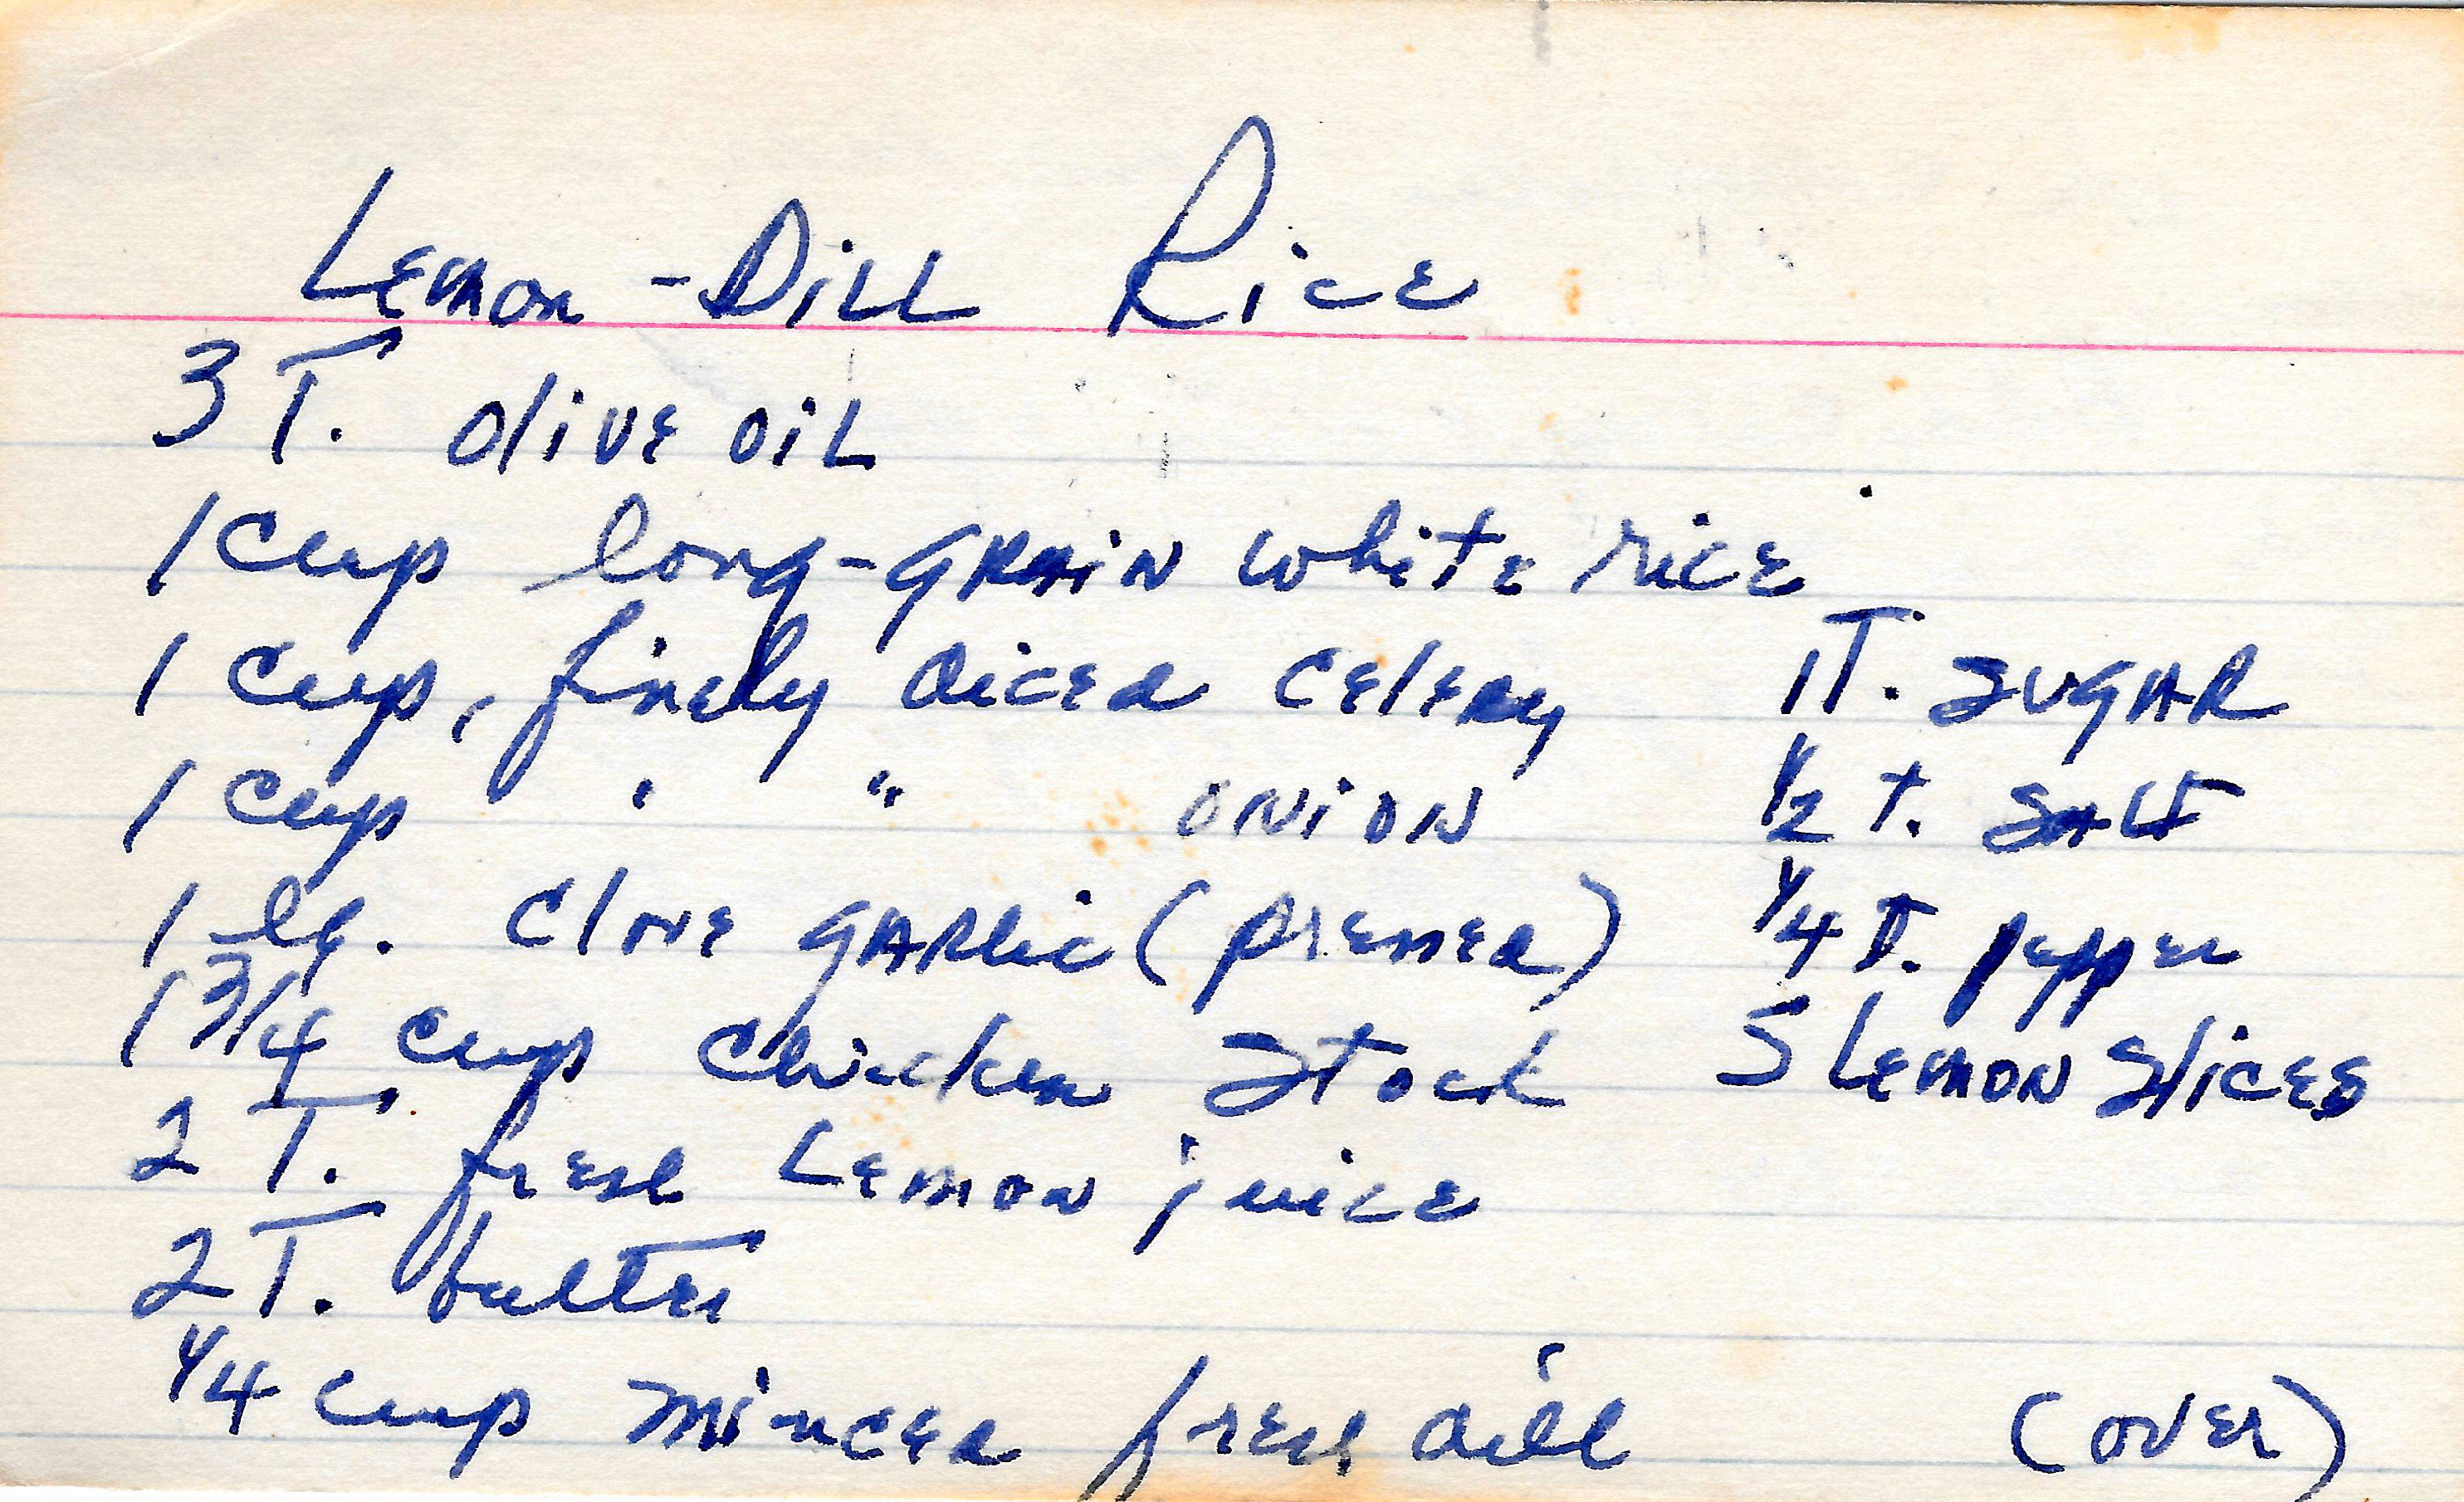 Lemon-Dill Rice
3 T. olive oil
1 cup long-grain white rice
1 cup, finely diced celery
1 cup " " onion
1 lg. clove garlic (pressed)
1 3/4 cup chicken stock
2 T. fresh lemon juice
2 T. butter
1/4 cup minced fresh dill
1 T. sugar
1/2 t. salt
1/4 t. pepper
5 lemon slices
(over)